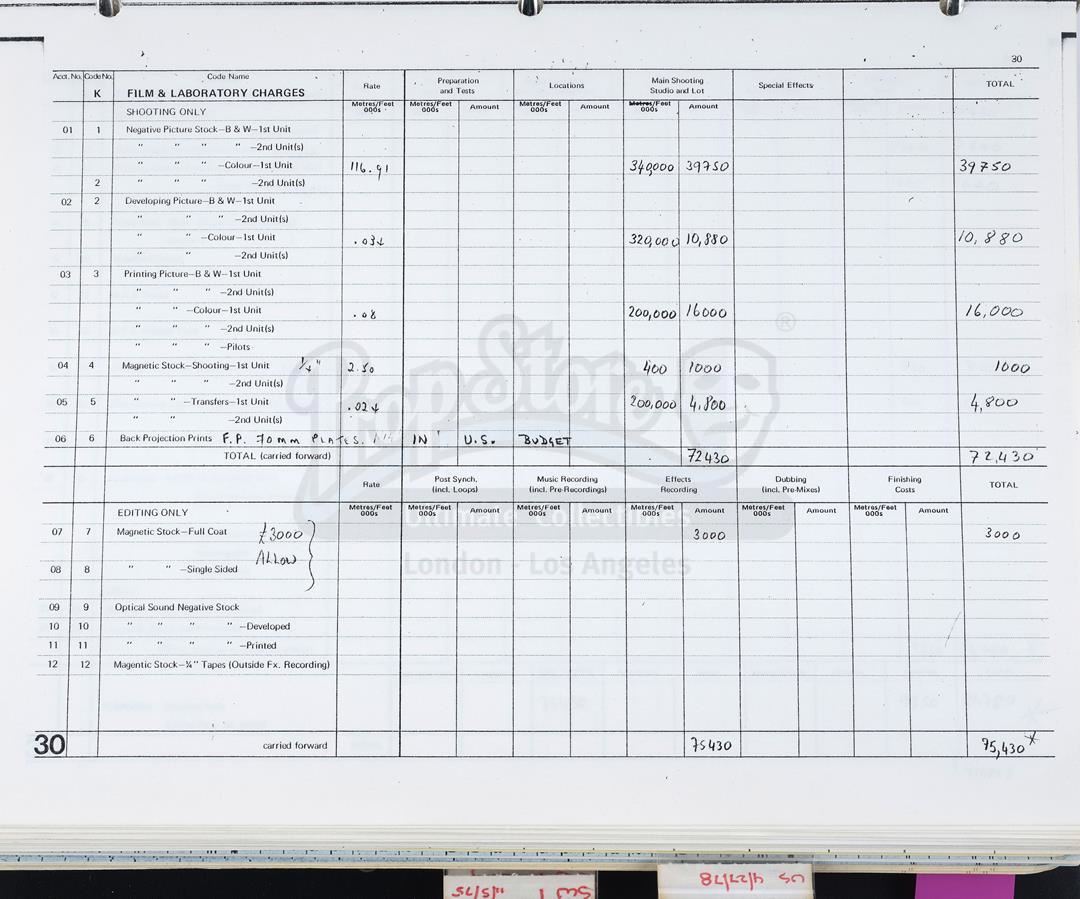 30
Acct. No. Code No. Code Name Rate Preparation and Tests Locations Main Shooting Studio and Lot Special Effects TOTAL
K FILM & LABORATORY CHARGES Metres/Feet 000s Metres/Feet 000s Amount Metres/Feet 000s Amount Metres/Feet 000s Amount
SHOOTING ONLY
01 1 Negative Picture Stock—B & W—1st Unit
" " " " —2nd Unit(s)
" " " —Colour—1st Unit 116.91 340,000 39750 39750
2 " " " —2nd Unit(s)
02 2 Developing Picture—B & W—1st Unit
" " " —2nd Unit(s)
" " —Colour—1st Unit .034 320,000 10,880 10,880
" " —2nd Unit(s)
03 3 Printing Picture—B & W—1st Unit
" " " —2nd Unit(s)
" " —Colour—1st Unit .08 200,000 16000 16,000
" " " —2nd Unit(s)
" " " —Pilots
04 4 Magnetic Stock—Shooting—1st Unit 1/4" 2.50 400 1000 1000
" " " —2nd Unit(s)
05 5 " " —Transfers—1st Unit .024 200,000 4,800 4,800
" " —2nd Unit(s)
06 6 Back Projection Prints F.P. 70mm PLATES. IN U.S. BUDGET
TOTAL (carried forward) 72430 72,430
Rate Post Synch. (incl. Loops) Music Recording (incl. Pre-Recordings) Effects Recording Dubbing (incl. Pre-Mixes) Finishing Costs TOTAL
EDITING ONLY Metres/Feet 000s Metres/Feet 000s Amount Metres/Feet 000s Amount Metres/Feet 000s Amount Metres/Feet 000s Amount Metres/Feet 000s Amount
07 7 Magnetic Stock—Full Coat £3000 3000 3000
ALLOW
08 8 " " —Single Sided
09 9 Optical Sound Negative Stock
10 10 " " " " —Developed
11 11 " " " " —Printed
12 12 Magentic Stock—¼" Tapes (Outside Fx. Recording)
30 carried forward 75430 75,430*
PropStore ®
Ultimate Collectibles
London - Los Angeles
US 4/27/78